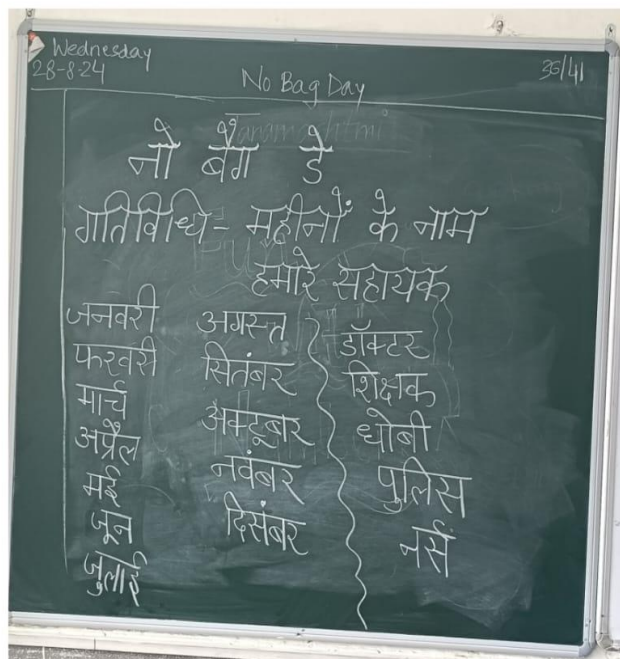 Wednesday
28-8-24
No Bag Day
36/41
नो बैग डे
गतिविधि - महीनों के नाम
हमारे सहायक
जनवरी
फरवरी
मार्च
अप्रैल
मई
जून
जुलाई
अगस्त
सितंबर
अक्टूबर
नवंबर
दिसंबर
डॉक्टर
शिक्षक
धोबी
पुलिस
नर्स